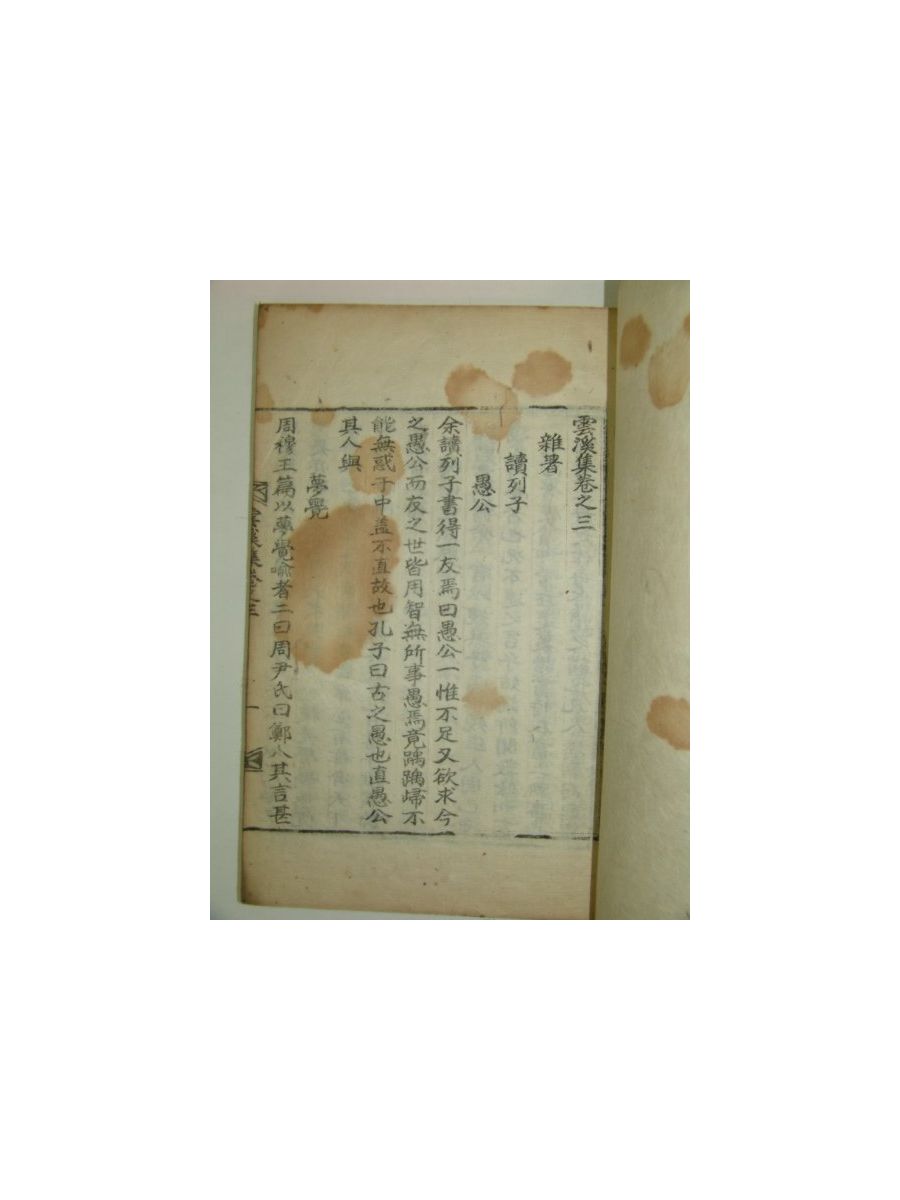 雲溪集卷之三
雜著
讀列子
愚公
余讀列子書得一友焉曰愚公一惟不足又欲求今
之愚公而友之世皆用智無所事愚焉竟踽踽歸不
能無惑于中蓋不直故也孔子曰古之愚也直愚公
其人與
夢覺
周穆王篇以夢覺喩者二曰周尹氏曰鄭人其言甚
雲溪集卷之三
一